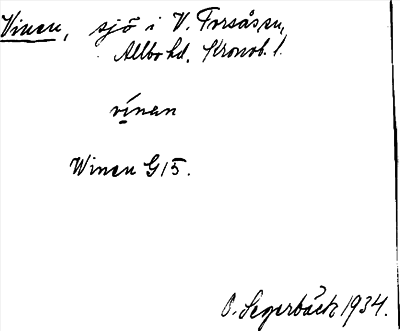 Vinen, sjö i V. Torsås sn,
Allbo hd, Kronob. l.
vínan
Winen G15.
O. Segerbäck 1934.